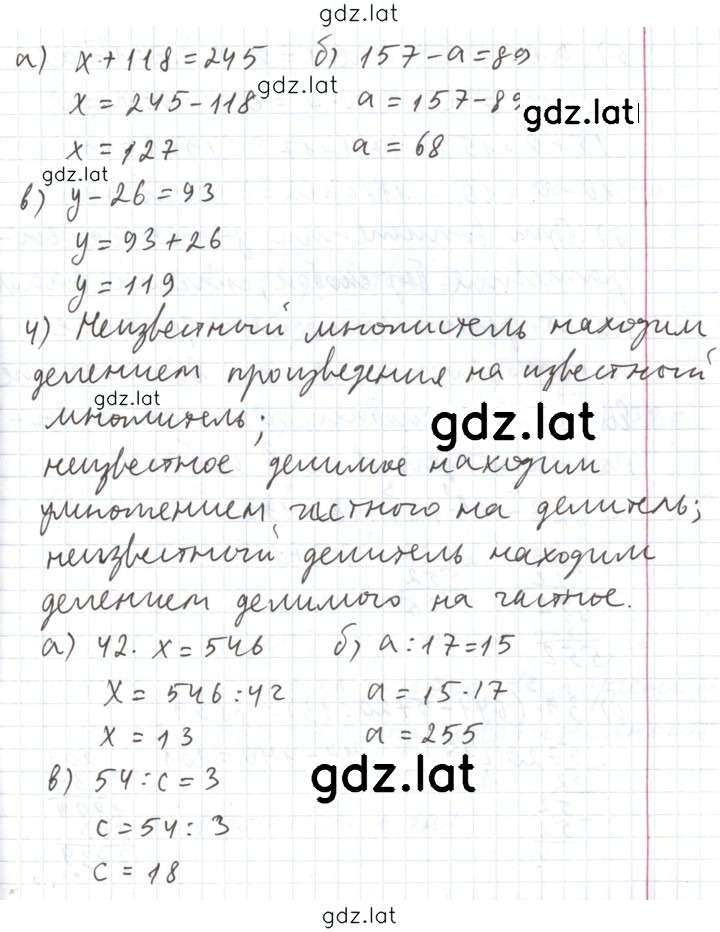 gdz.lat
а) x + 118 = 245 б) 157 - a = 89
gdz.lat
x = 245 - 118 a = 157 - 89
gdz.lat
x = 127 a = 68
gdz.lat
в) y - 26 = 93
y = 93 + 26
y = 119
4) Неизвестный множитель находим
делением произведения на известный
gdz.lat
множитель;
gdz.lat
неизвестное делимое находим
умножением частного на делитель;
неизвестный делитель находим
делением делимого на частное.
а) 42 · x = 546 б) a : 17 = 15
x = 546 : 42 a = 15 · 17
x = 13 a = 255
в) 54 : c = 3
gdz.lat
c = 54 : 3
c = 18
gdz.lat